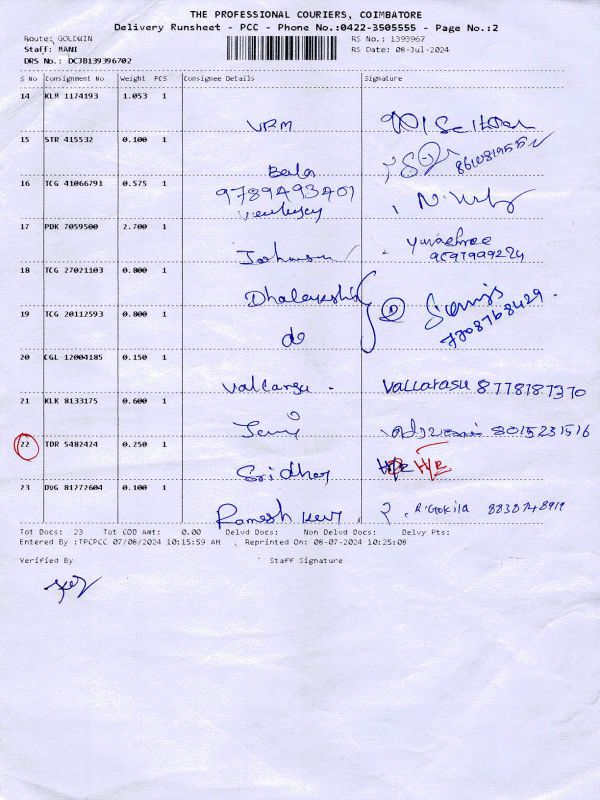 THE PROFESSIONAL COURIERS, COIMBATORE
Delivery Runsheet - PCC - Phone No.:0422-3505555 - Page No.:2
Route: GOLDWIN RS No.: 1393967
Staff: MANI RS Date: 08-Jul-2024
DRS No.: DCJB139396702
S No Consignment No Weight PCS Consignee Details Signature
14 KLM 1174193 1.053 1
VRM
15 STR 415532 0.100 1
Bala
16 TCG 41066791 0.575 1
9789493401
17 PDK 7059500 2.700 1
Johnson
9597999224
18 TCG 27021103 0.800 1
19 TCG 20112593 0.800 1
do
7708768429
20 CGL 12004185 0.150 1
Vallarasu 8778187370
21 KLK 8133175 0.600 1
8015231516
22 TDR 5482424 0.250 1
Sridhar
23 DVG 81772604 0.100 1
R. Gokila
Tot Docs: 23 Tot COD Amt: 0.00 Delvd Docs: Non Delvd Docs: Delvy Pts:
Entered By :TPCPCC 07/08/2024 10:15:59 AM , Reprinted On: 08-07-2024 10:25:08
Verified By Staff Signature